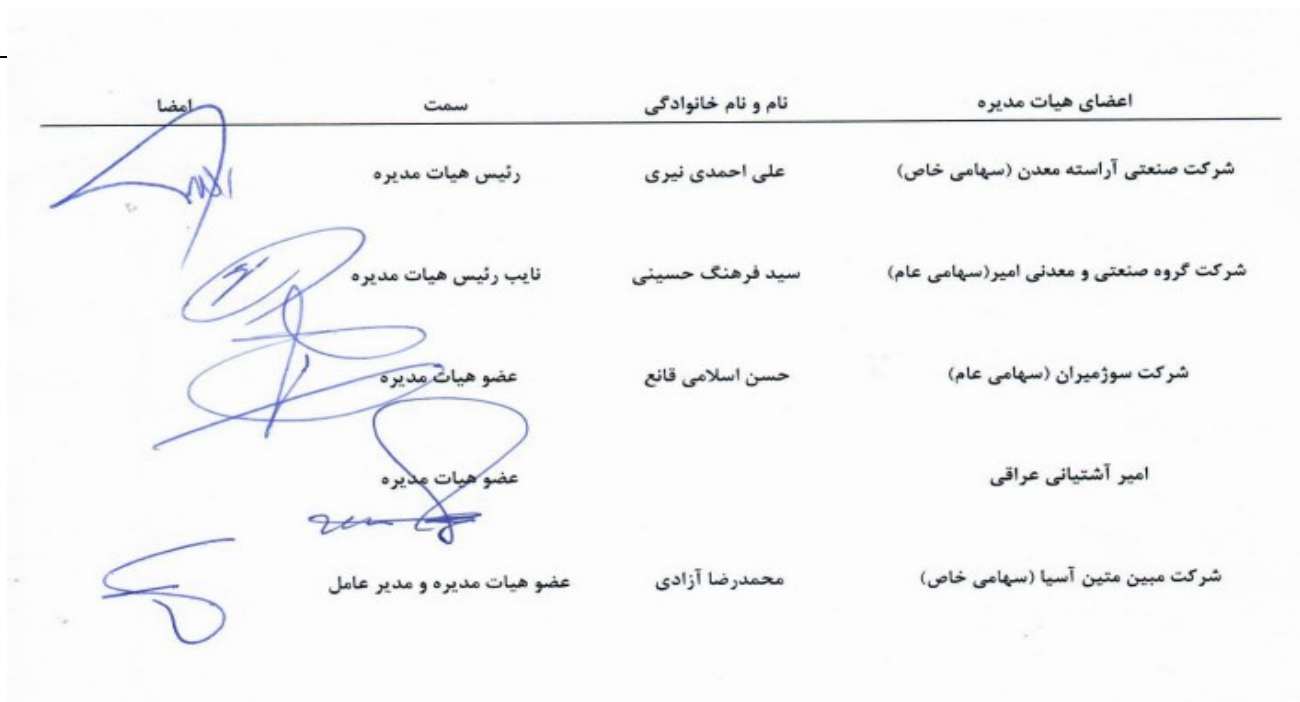 اعضای هیات مدیره نام و نام خانوادگی سمت امضا
شرکت صنعتی آراسته معدن (سهامی خاص) علی احمدی نیری رئیس هیات مدیره
شرکت گروه صنعتی و معدنی امیر(سهامی عام) سید فرهنگ حسینی نایب رئیس هیات مدیره
شرکت سوژمیران (سهامی عام) حسن اسلامی قانع عضو هیات مدیره
امیر آشتیانی عراقی عضو هیات مدیره
شرکت مبین متین آسیا (سهامی خاص) محمدرضا آزادی عضو هیات مدیره و مدیر عامل